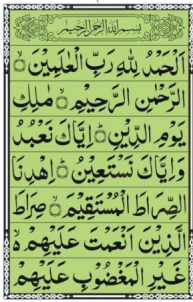 بِسْمِ اللهِ الرَّحْمٰنِ الرَّحِيْمِ
اَلْحَمْدُ لِلّٰهِ رَبِّ الْعٰلَمِيْنَ ۙ
الرَّحْمٰنِ الرَّحِيْمِ ۙ مٰلِكِ
يَوْمِ الدِّيْنِ ؕ اِيَّاكَ نَعْبُدُ
وَ اِيَّاكَ نَسْتَعِيْنُ ؕ اِهْدِنَا
الصِّرَاطَ الْمُسْتَقِيْمَ ۙ صِرَاطَ
الَّذِيْنَ اَنْعَمْتَ عَلَيْهِمْ ۙ
غَيْرِ الْمَغْضُوْبِ عَلَيْهِمْ